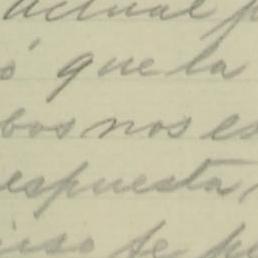 actual p
ó que la
bos nos es
espuesta
uso se pe